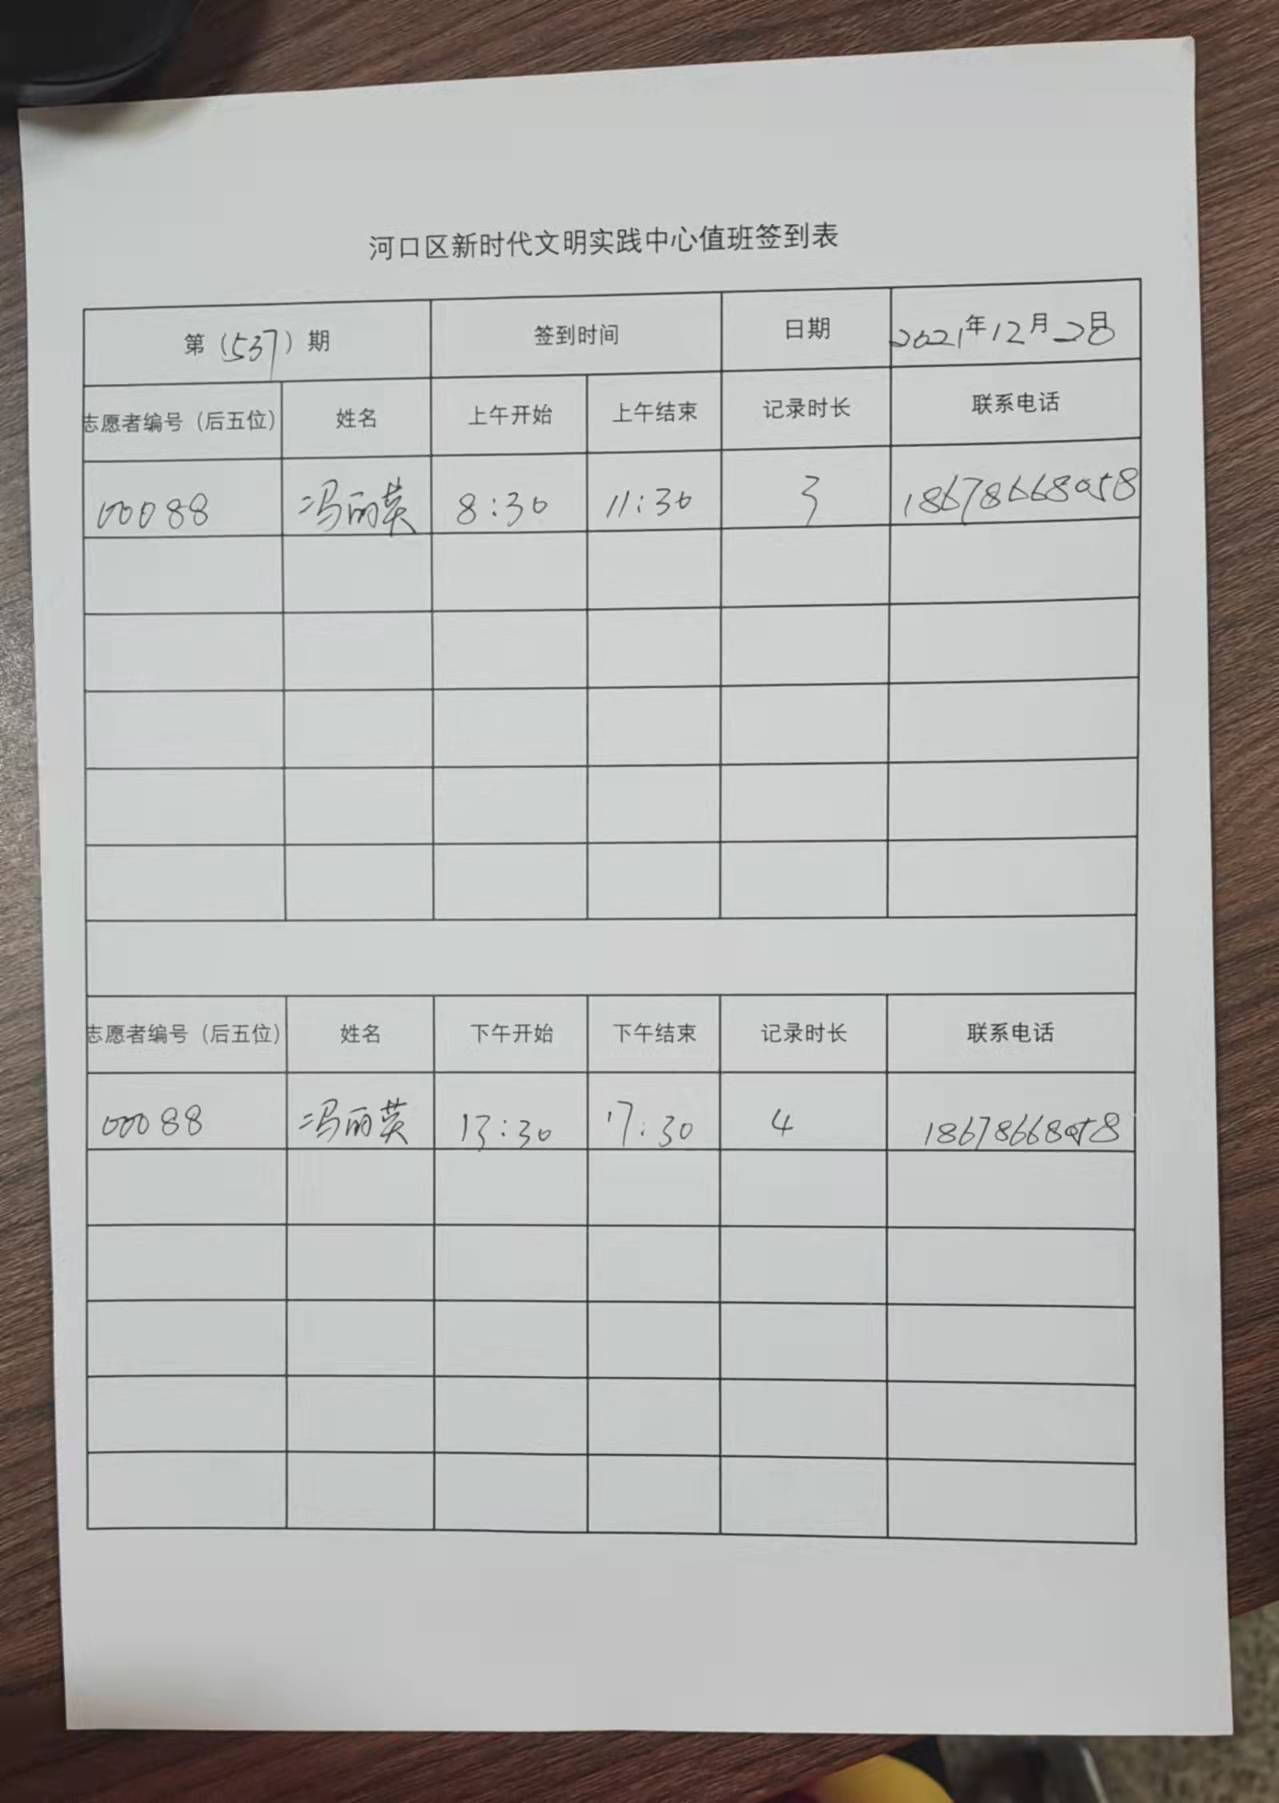 河口区新时代文明实践中心值班签到表
第（537）期 签到时间 日期 2021年12月28日
志愿者编号（后五位） 姓名 上午开始 上午结束 记录时长 联系电话
00088 冯丽英 8:30 11:30 3 18678668058
志愿者编号（后五位） 姓名 下午开始 下午结束 记录时长 联系电话
00088 冯丽英 13:30 17:30 4 18678668058